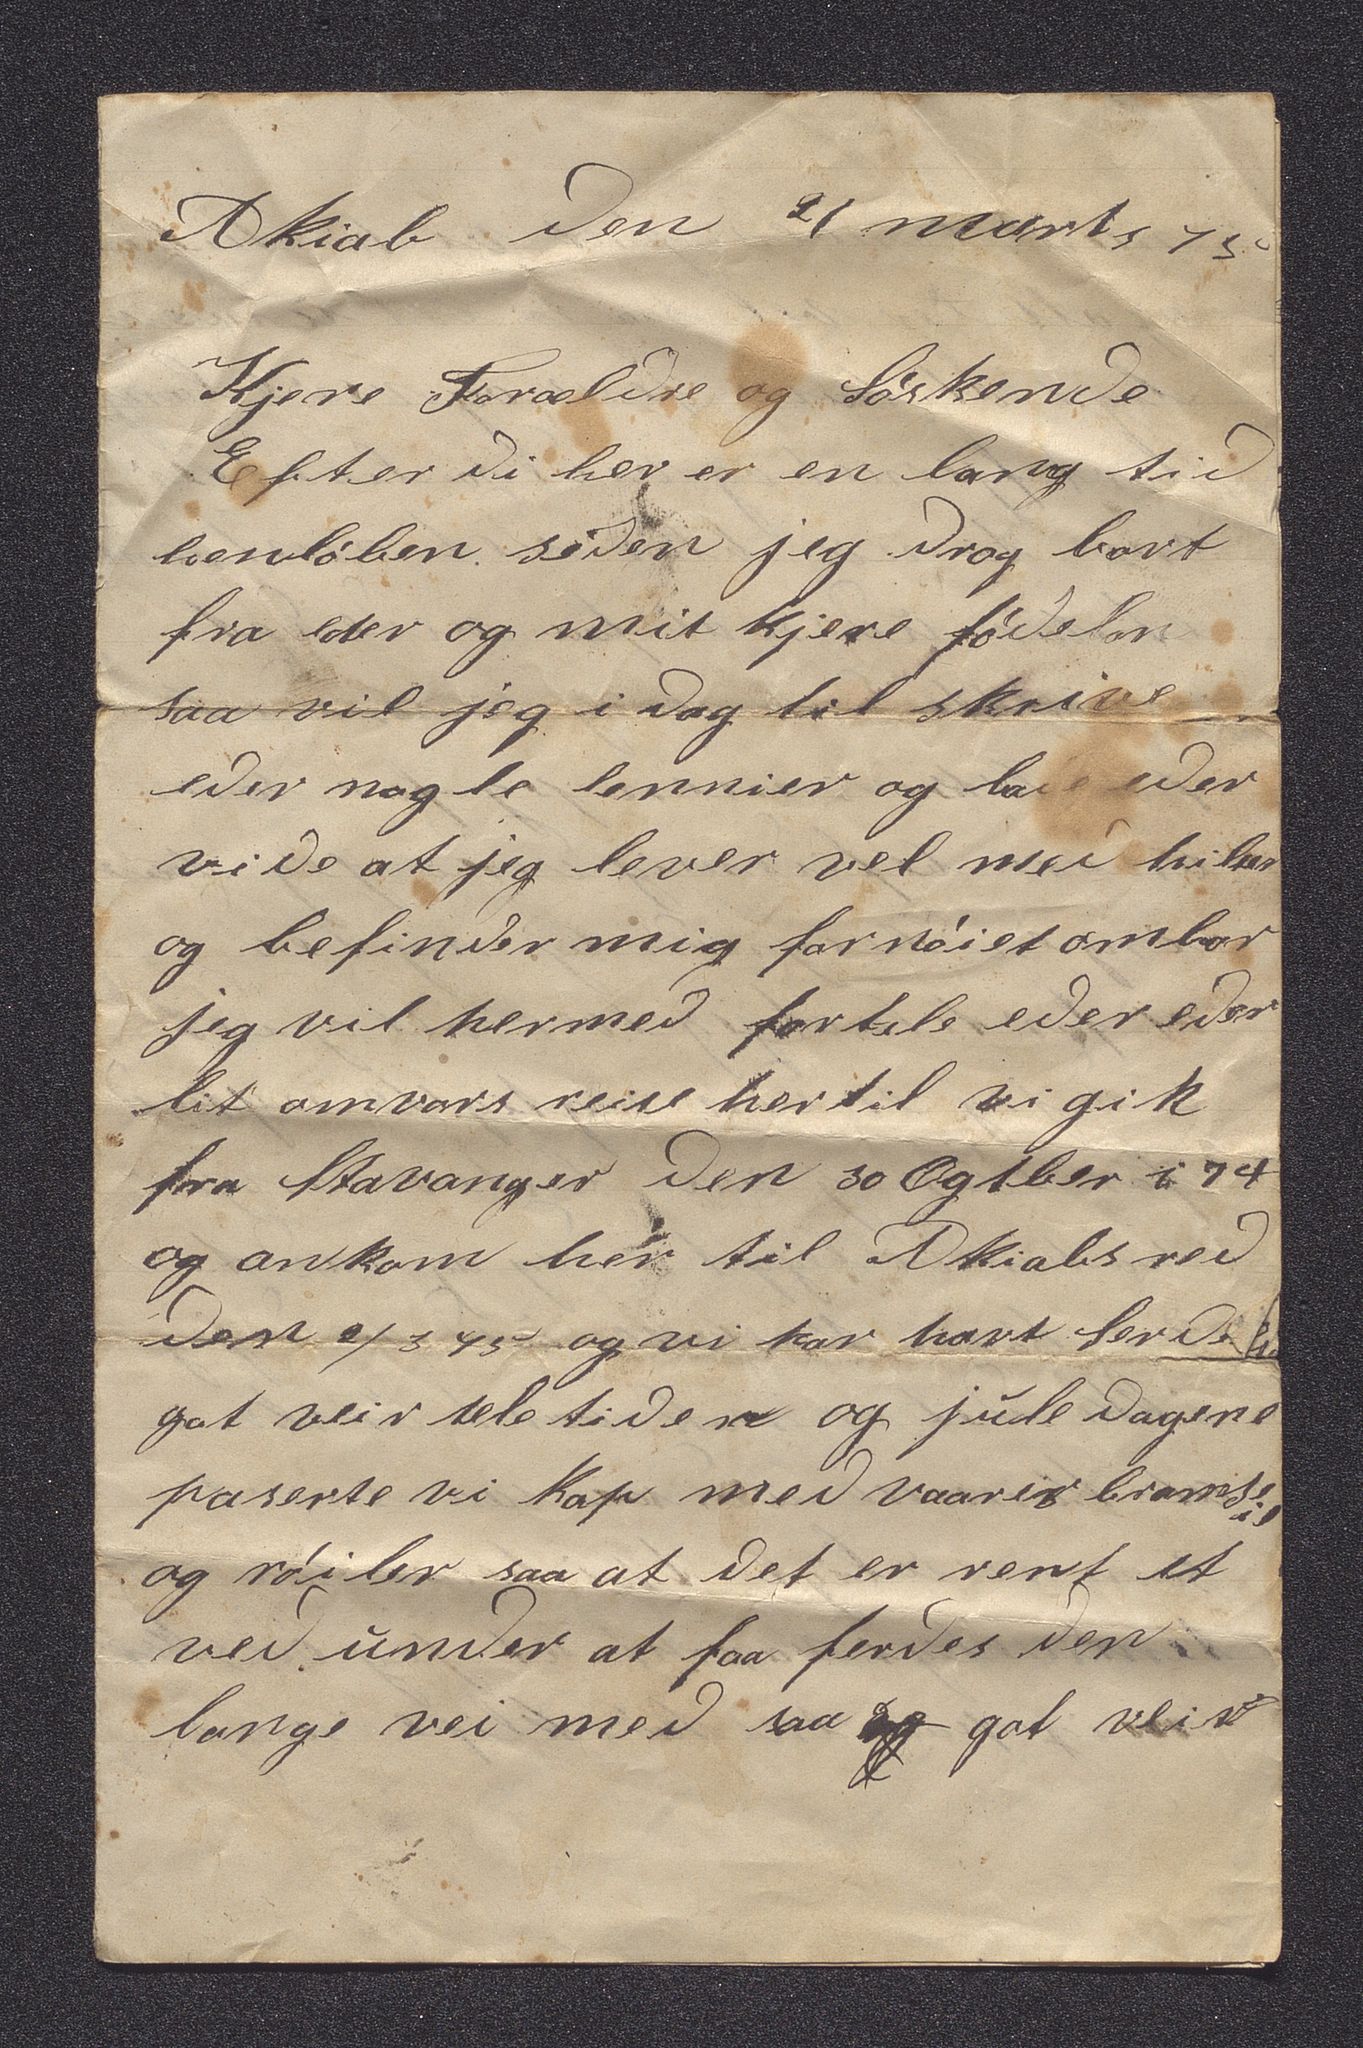 Akiab den 21 marts 75
Kjere Forældre og Söskende
Efter di her er en lang tid
henlöben siden jeg drog bort
fra eder og mit kjere födelan
saa vil jeg i dag til skrive
eder nogle lennier og lade eder
vide at jeg lever vel med hilsen
og befinder mig fornöiet ombor
jeg vil hermed fortele eder eder
lit omvors reise hertil vi gik
fra Stavanger den 30 Ogtber i 74
og ankom her til Akiabs red
den 2/3 75 og vi har havt
got veir hele tiden og jule dagene
paserte vi Kap med vaares bramseil
og röiler saa at det er rent et
ved under at faa ferdes den
lange vei med saa got veir